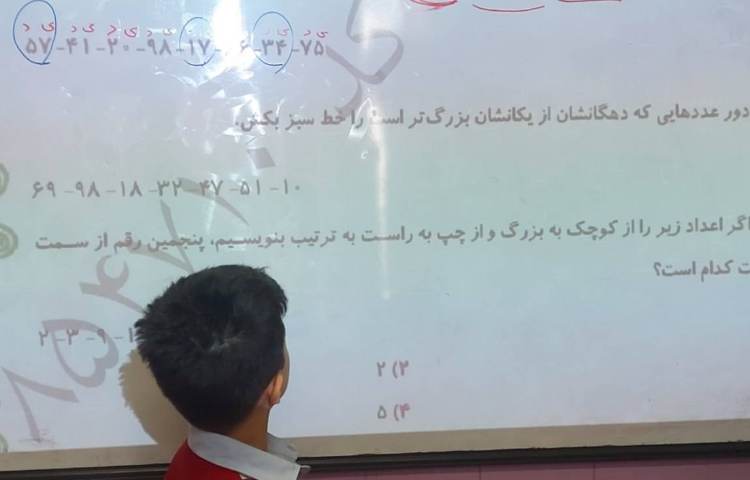 ۵۷-۴۱-۲۰-۹۸-۱۷- ۶-۳۴-۷۵
دور عددهایی که دهگانشان از یکانشان بزرگ‌تر است را خط سبز بکش.
۶۹-۹۸-۱۸-۳۲-۴۷-۵۱-۱۰
اعداد زیر را از کوچک به بزرگ و از چپ به راست به ترتیب بنویسیم، پنجمین رقم از سمت
کدام است؟
۲-۳-۹-۱
۲ (۳
۵ (۴